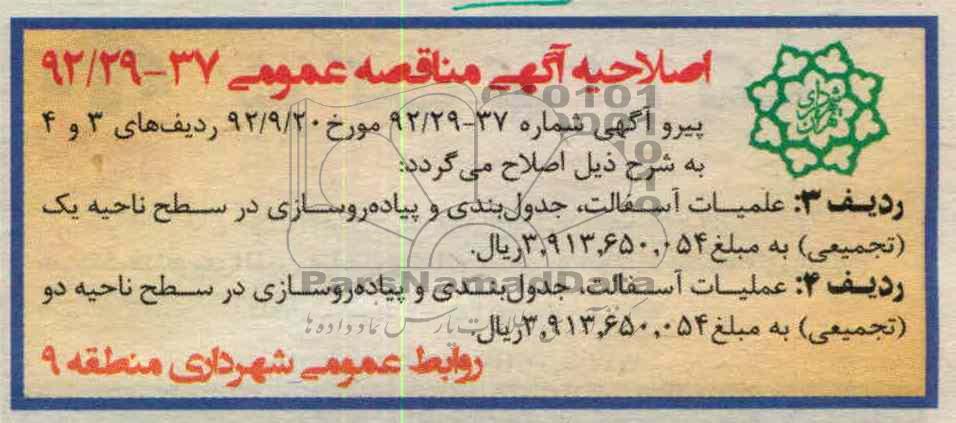 اصلاحیه آگهی مناقصه عمومی ۳۷-۹۲/۲۹
پیرو آگهی شماره ۳۷-۹۲/۲۹ مورخ ۹۲/۹/۲۰ ردیف‌های ۳ و ۴
به شرح ذیل اصلاح می‌گردد:
ردیف ۳: علمیات آسفالت، جدول‌بندی و پیاده‌روسازی در سطح ناحیه یک
(تجمیعی) به مبلغ ۳,۹۱۳,۶۵۰,۰۵۴ ریال.
ردیف ۴: عملیات آسفالت، جدول‌بندی و پیاده‌روسازی در سطح ناحیه دو
(تجمیعی) به مبلغ ۳,۹۱۳,۶۵۰,۰۵۴ ریال.
روابط عمومی شهرداری منطقه ۹
شهرداری تهران
ParsNamadData